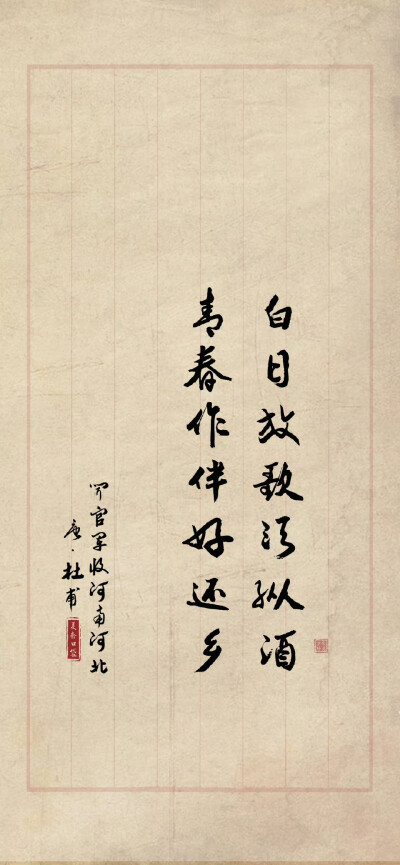 白日放歌须纵酒
青春作伴好还乡
闻官军收河南河北
唐·杜甫